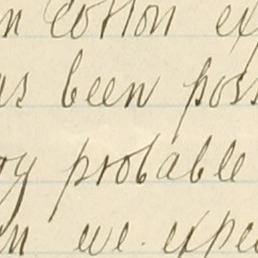 n cotton ex
as been poss
ry probable
n we expec